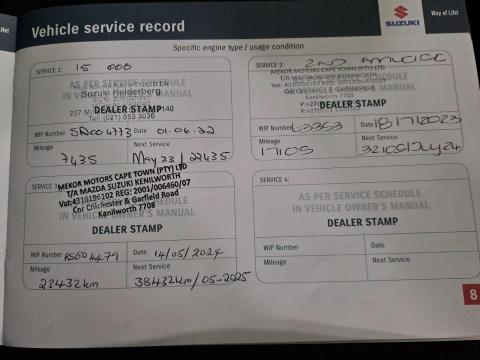 Vehicle service record
SUZUKI
Way of Life!
Specific engine type / usage condition
SERVICE 1: 15 000
AS PER SERVICE SCHEDULE
IN VEHICLE OWNER'S MANUAL
Suzuki Helderberg
Tel: (021) 853 3036
DEALER STAMP
WIP Number Date 01.06.22
Mileage Next Service
7435 May 23 / 22435
SERVICE 2: 2ND
MEKOR MOTORS CAPE TOWN (PTY) LTD
T/A MAZDA SUZUKI KENILWORTH
Kenilworth 7708
DEALER STAMP
WIP Number 63353 Date 18/7/2023
Mileage Next Service
17105 32105/July24
SERVICE 3:
MEKOR MOTORS CAPE TOWN (PTY) LTD
T/A MAZDA SUZUKI KENILWORTH
Vat:4310196102 REG: 2001/006460/07
Cnr Chichester & Garfield Road
Kenilworth 7708
DEALER STAMP
WIP Number Date 14/05/2024
Mileage Next Service
23432km 38432km/05-2025
SERVICE 4:
AS PER SERVICE SCHEDULE
IN VEHICLE OWNER'S MANUAL
DEALER STAMP
WIP Number Date
Mileage Next Service
8